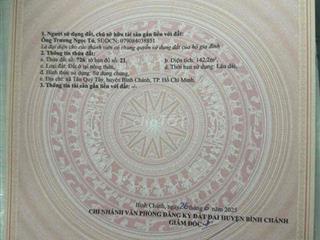 1. Người sử dụng đất, chủ sở hữu tài sản gắn liền với đất:
Ông Trương Ngọc Tú, SĐDCN: 079084038851
Là đại diện cho các thành viên có chung quyền sử dụng đất của hộ gia đình
2. Thông tin thửa đất:
a. Thửa đất số: 726; tờ bản đồ số: 21. b. Diện tích: 142,2m².
c. Loại đất: Đất ở tại nông thôn. d. Thời hạn sử dụng: Lâu dài.
đ. Hình thức sử dụng: Sử dụng chung.
e. Địa chỉ: xã Tân Quý Tây, huyện Bình Chánh, TP. Hồ Chí Minh.
3. Thông tin tài sản gắn liền với đất: -/-
Bình Chánh, ngày 26 tháng 6 năm 2025
CHI NHÁNH VĂN PHÒNG ĐĂNG KÝ ĐẤT ĐAI HUYỆN BÌNH CHÁNH
GIÁM ĐỐC